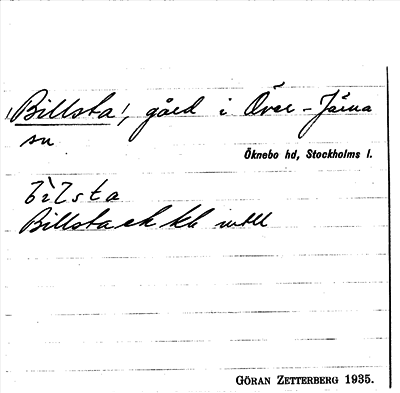 ! Billsta !, gård i Över-Järna
sn
Öknebo hd, Stockholms l.
bìlsta
Billsta ek kk
GÖRAN ZETTERBERG 1935.